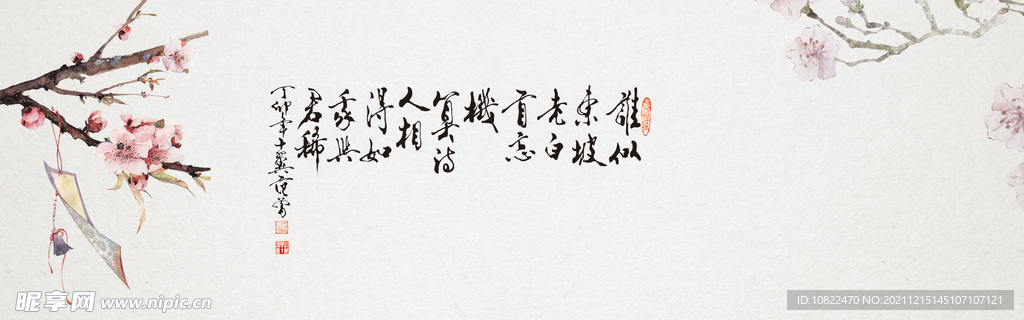 誰似
東坡
老白
首忘
機
算詩
人相
得如
我與
君稀
丁卯年十翼范曾
昵享网 www.nipic.cn
ID:10822470 NO:20211215145107107121